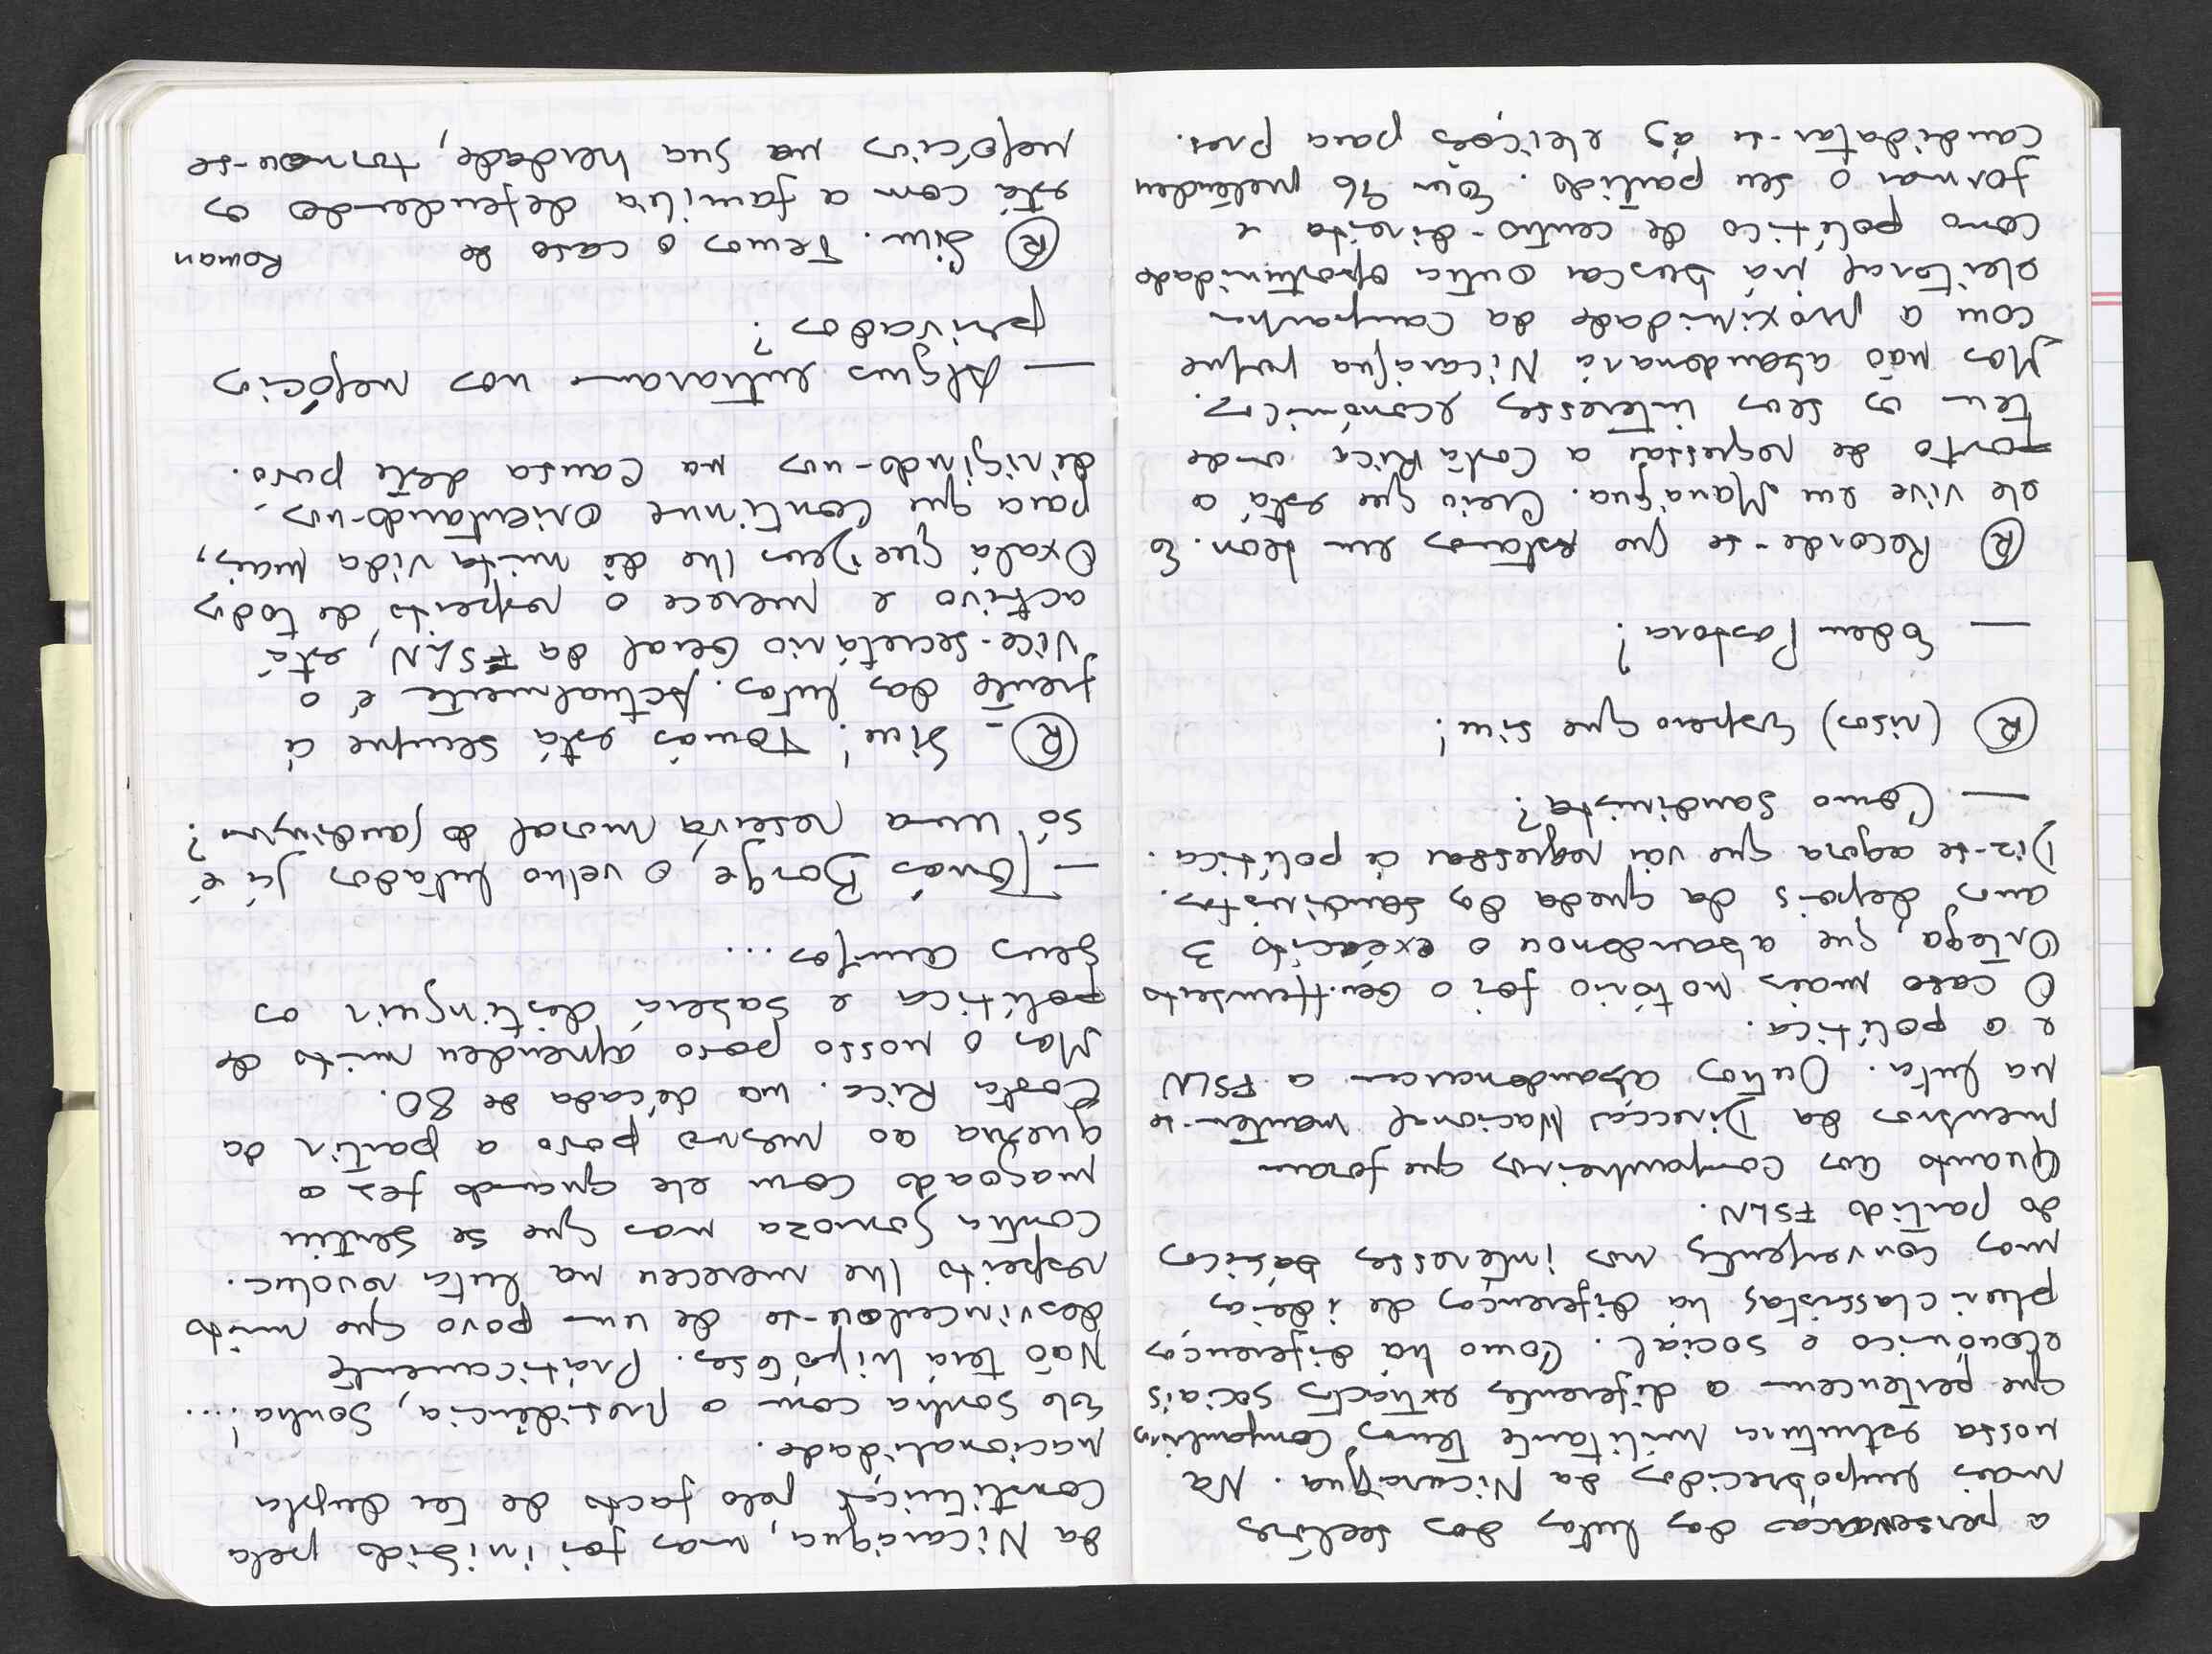 a perseverança das lutas dos sectores
mais empobrecidos da Nicarágua. Na
nossa estrutura militante temos companheiros
que pertencem a diferentes extractos sociais
económico e social. Como há diferenças
pluriclassistas há diferenças de ideias
mas convergentes nos interesses básicos
do partido FSLN.
Quanto aos companheiros que foram
membros da Direcção Nacional mantêm-se
na luta. Outros abandonaram a FSLN
e a política.
O caso mais notório foi o Gen. Humberto
Ortega, que abandonou o exército 3
anos depois da queda dos sandinistas.
Diz-se agora que vai regressar à política.
— Como sandinista?
(R) (risos) Espero que sim!
— Eden Pastora?
(R) Recorde-se que estamos em Leon. E
ele vive em Manágua. Creio que está a
ponto de regressar a Costa Rica onde
tem os seus interesses económicos.
Mas não abandonará Nicarágua porque
com a proximidade da campanha
eleitoral irá buscar outra oportunidade
como político de centro-direita e
formar o seu partido. Em 96 pretendeu
candidatar-se às eleições para pres.
da Nicarágua, mas foi inibido pela
Constituição pelo facto de ter dupla
nacionalidade.
Ele sonha com a presidência, sonha!...
Não terá hipóteses. Práticamente
desvinculou-se de um povo que muito
respeito lhe mereceu na luta revoluc.
contra Somoza mas que se sentiu
magoado com ele quando fez a
guerra ao mesmo povo a partir da
Costa Rica. na década de 80.
Mas o nosso povo aprendeu muito de
política e saberá destinguir os
seus amigos...
— Tomás Borge, o velho lutador já é
só uma reserva moral do sandinismo?
(R) - Sim! Tomás está sempre à
frente das lutas. Actualmente é o
vice-secretário Geral da FSLN, está
activo e merece o respeito de todos
Oxalá que Deus lhe dê muita vida mais,
para que continue orientando-nos,
dirigindo-nos na causa deste povo.
— Alguns entraram nos negócios
privados?
(R) Sim. Temos o caso de Roman
está com a família defendendo os
negócios na sua herdade, tornou-se